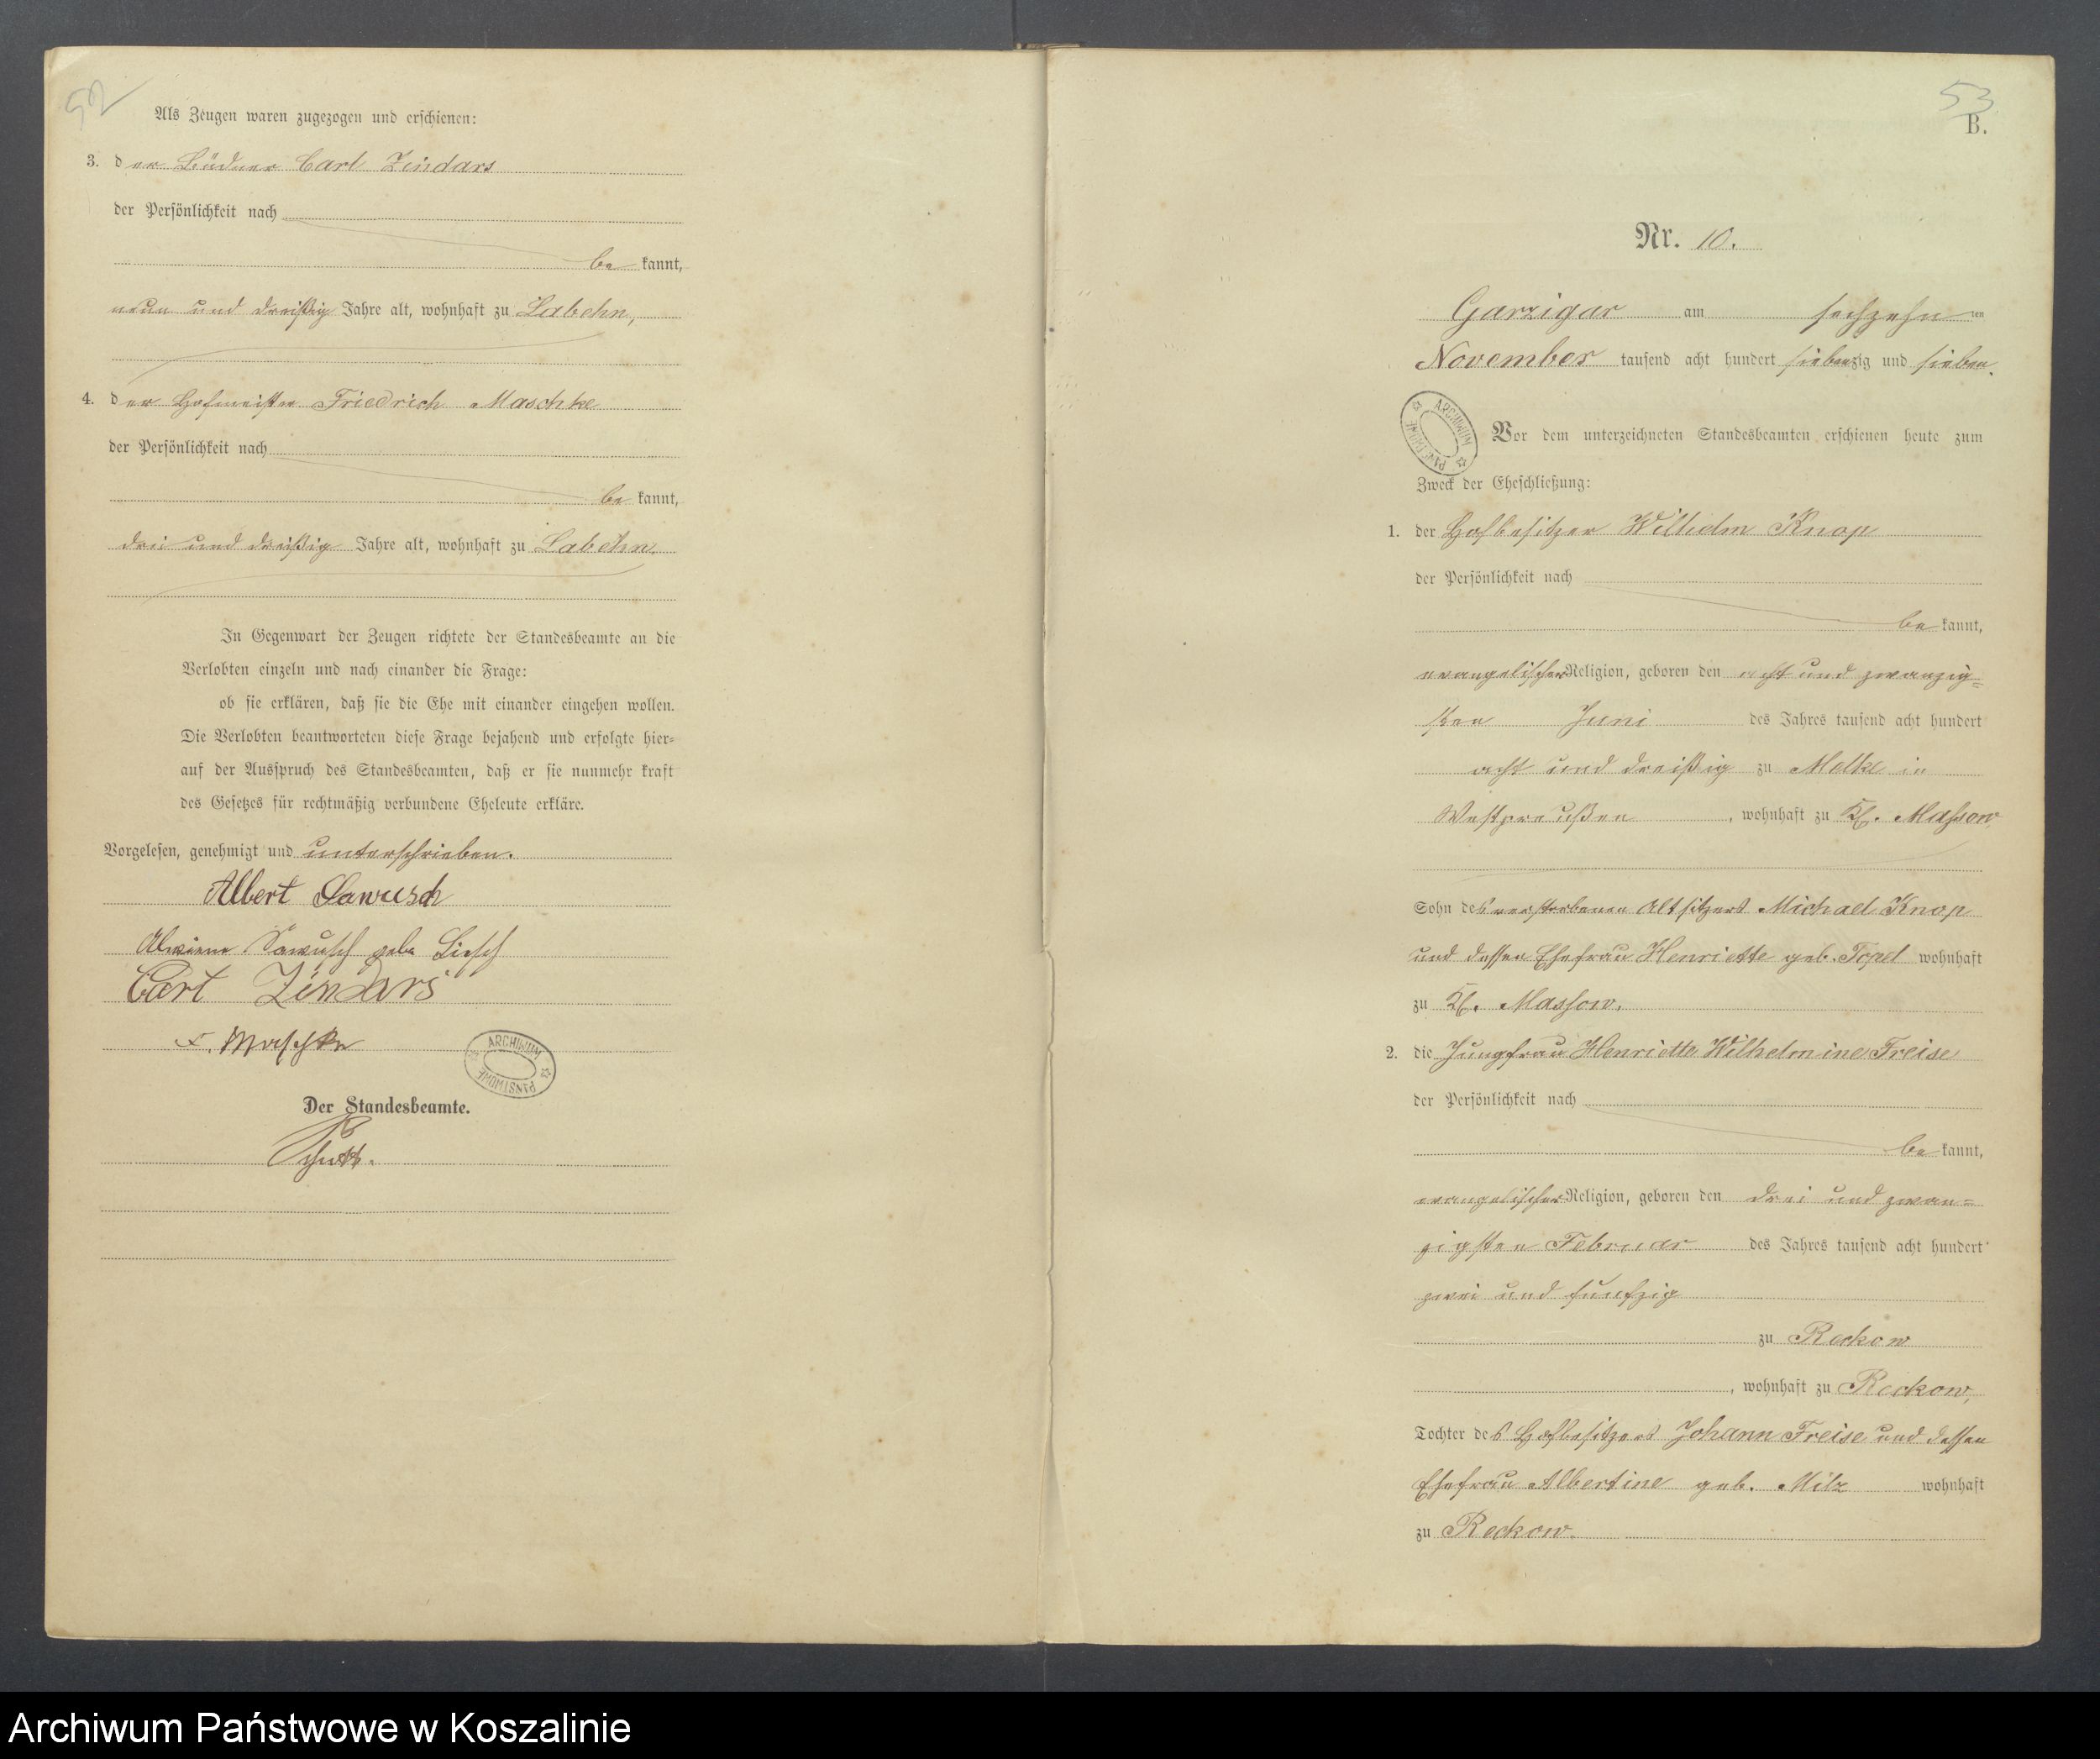 52
Als Zeugen waren zugezogen und erschienen:
3. der Büdner Carl Zindars
der Persönlichkeit nach
be kannt,
neun und dreißig Jahre alt, wohnhaft zu Labehn,
4. der Hofmeister Friedrich Maschke
der Persönlichkeit nach
be kannt,
drei und dreißig Jahre alt, wohnhaft zu Labehn.
In Gegenwart der Zeugen richtete der Standesbeamte an die
Verlobten einzeln und nach einander die Frage:
ob sie erklären, daß sie die Ehe mit einander eingehen wollen.
Die Verlobten beantworteten diese Frage bejahend und erfolgte hier=
auf der Ausspruch des Standesbeamten, daß er sie nunmehr kraft
des Gesetzes für rechtmäßig verbundene Eheleute erkläre.
Vorgelesen, genehmigt und unterschrieben.
Albert Sawusch
Sawusch geb.
Carl Zindars
F. Maschke
ARCHIWUM PAŃSTWOWE
Der Standesbeamte.
53
B.
Nr. 10.
Garzigar am sechzehn ten
November tausend acht hundert siebenzig und sieben.
ARCHIWUM PAŃSTWOWE
Vor dem unterzeichneten Standesbeamten erschienen heute zum
Zweck der Eheschließung:
1. der Hofbesitzer Wilhelm Knop
der Persönlichkeit nach
be kannt,
evangelischer Religion, geboren den acht und zwanzig=
sten Juni des Jahres tausend acht hundert
acht und dreißig zu Melke in
Westpreußen, wohnhaft zu Kl. Massow
Sohn des verstorbenen Altsitzers Michael Knop
und dessen Ehefrau Henriette geb. Topel wohnhaft
zu Kl. Massow.
2. die Jungfrau Henriette Wilhelmine Freise
der Persönlichkeit nach
be kannt,
evangelischer Religion, geboren den drei und zwan=
zigsten Februar des Jahres tausend acht hundert
zwei und funfzig
zu Reckow
, wohnhaft zu Reckow,
Tochter des Hofbesitzers Johann Freise und dessen
Ehefrau Albertine geb. Milz wohnhaft
zu Reckow.
Archiwum Państwowe w Koszalinie